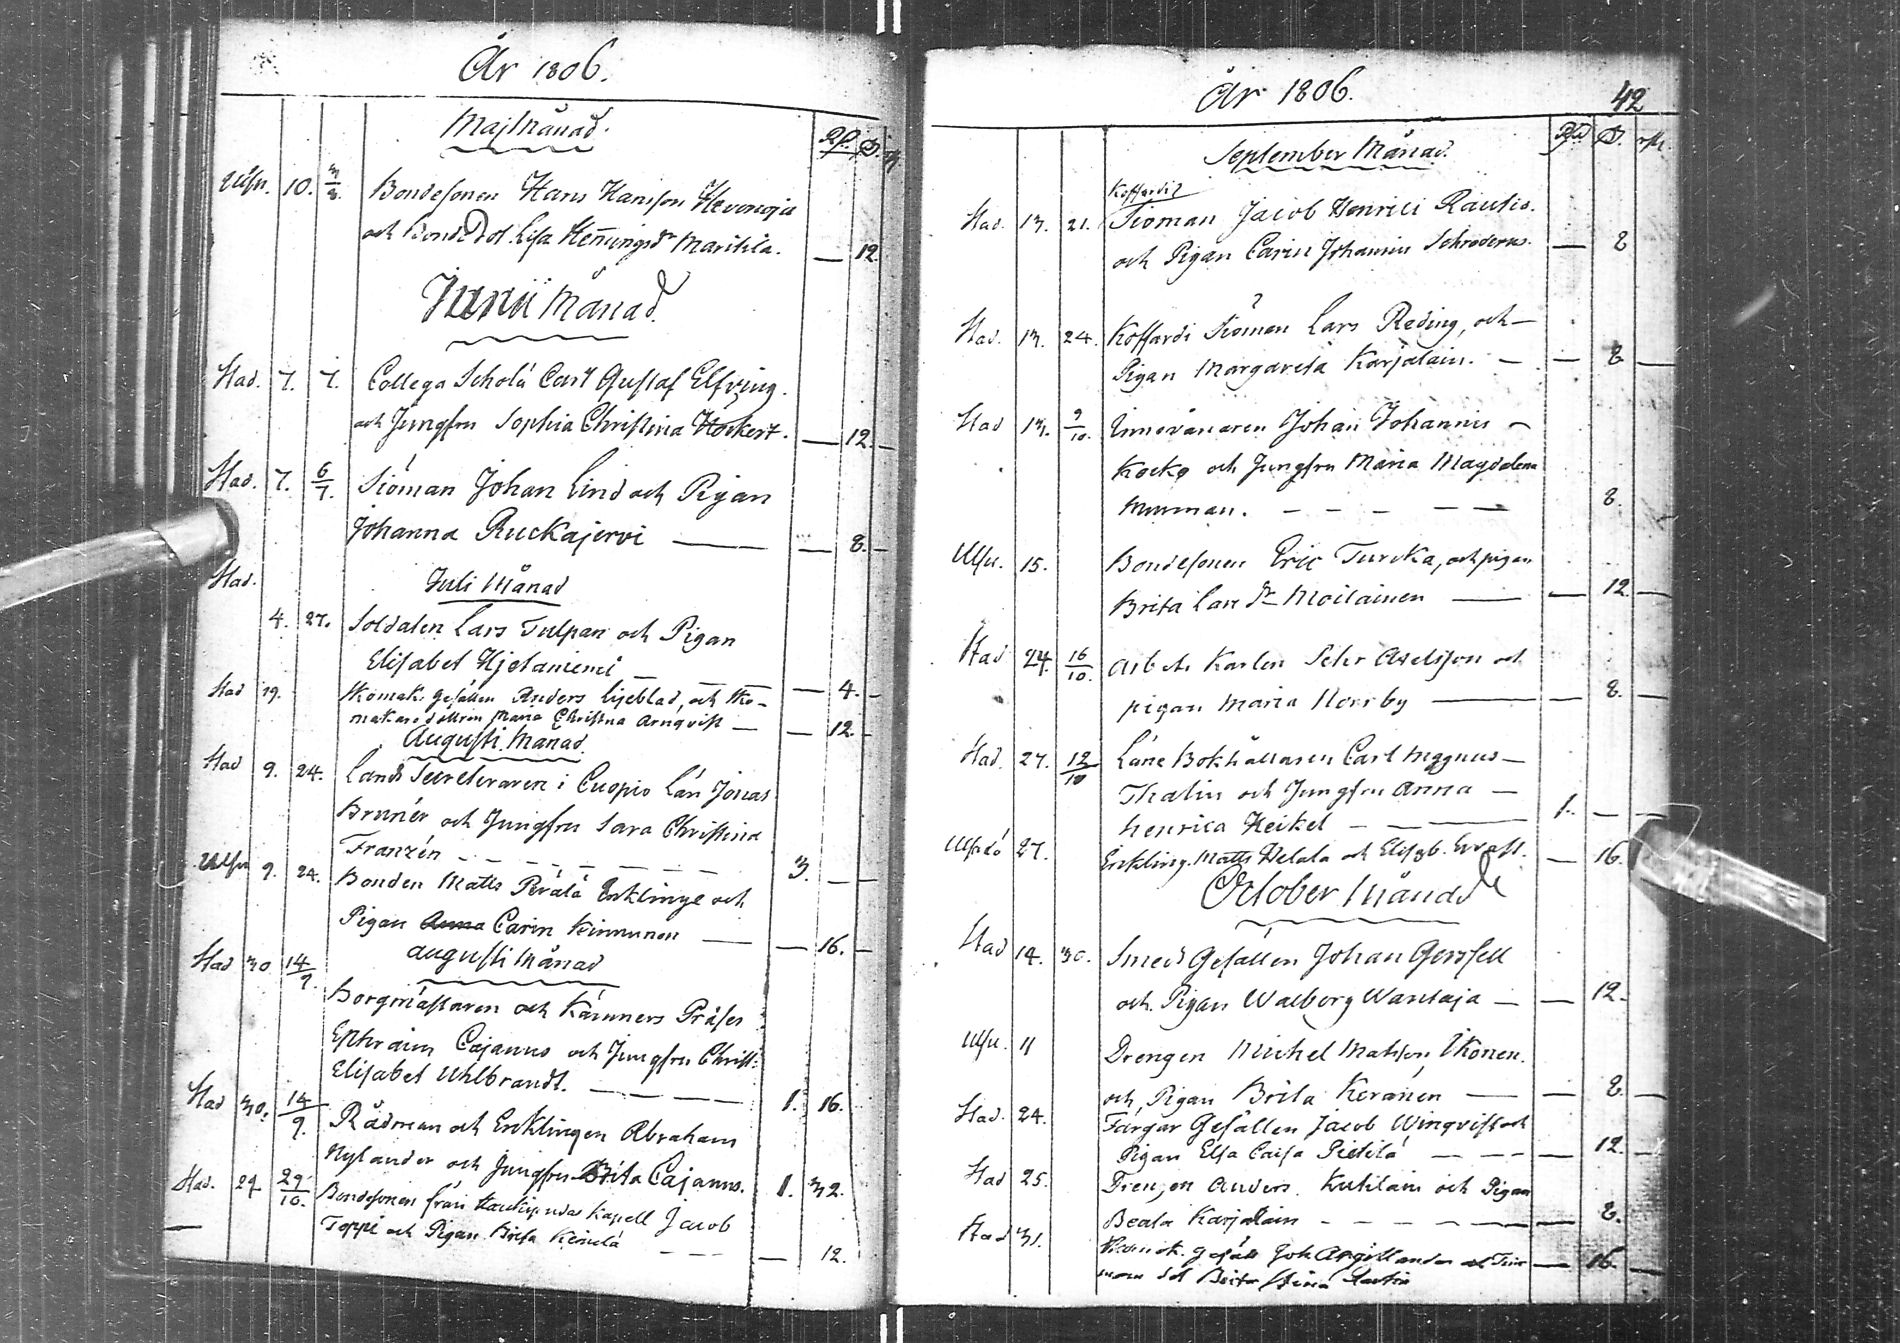 År 1806.
Maj Månad.
Ulsn. 10. 3/8. Bondesonen Hans Hansson Hevonoja
och Bonde Dot. Lisa Heñingsdr Marttila. — 12
Junii Månad.
Stad. 7. 7. Collega Scholæ Carl Gustaf Elfving
och Jungfru Sophia Christina Horkert. — 12. —
Stad. 7. 6/7. Siöman Johan Lind och Pigan
Johanna Ruckajervi — — 8. —
Stad. Juli Månad
4. 27. Soldaten Lars Tulpan och Pigan
Elisabet Hjetaniemi — — 4. —
Stad 19. Skomak. gesällen Anders Liljeblad, och Sko-
makaredottren Maria Christina Arnqvist — — 12. —
Augusti Månad
Stad 9. 24. Lands Secreteraren i Cuopio Län Jonas
Brunér och Jungfru Sara Christina
Franzén — — — 3. — —
Ulsn 9. 24. Bonden Matts Perälä Enklinge och
Pigan Anna Carin Kinnunen — — 16. —
Augusti Månad
Stad 30 14/9. Borgmästaren och Kämners Præses
Ephraim Cajanus och Jungfru Christ:
Elisabet Uhlbrandt. — — — 1. 16.
Stad 30. 14/9. Rådman och Enklingen Abraham
Nylander och Jungfru Brita Cajanus. 1. 32.
Stad. 29 29/10. Bondesonen från Haukipudas Kapell Jacob
Toppi och Pigan Brita — — 12.
År 1806. 42
September Månad.
Koffardi
Stad. 13. 21. Siöman Jacob Henrici Rautio.
och Pigan Carin Johannis Schroderus. — 8
Stad. 13. 24. Koffardi Siöman Lars Reding, och —
Pigan Margareta Karjalain. — — 8 —
Stad 13. 9/10. Innevånaren Johan Johannis —
Kocko och Jungfru Maria Magdalena
Murman. — — — — — 8.
Ulsn. 15. Bondesonen Eric Turcka, och pigan
Brita Lars dr Moilainen — — 12. —
Stad 24. 16/10. Arbets Karlen Petr Axelsson och
pigan Maria Norrby — — 8. —
Stad. 27. 12/10 Läne Bokhållaren Carl Magnus —
Thalin och Jungfru Anna —
Henrica Heikel — — 1. — —
27. Enkling. Matts Helala och Elisab. — 16.
October Månad
Stad 14. 30. Smeds Gesällen Johan Gersfell
och Pigan Walborg Wantaja — — 12. —
Ulsn. 11 Drengen Michel Matsson Ikonen.
och Pigan Brita Keränen — — 8. —
Stad. 24. Färgar Gesällen Jacob Winqvist och
Pigan Elsa Caisa Pietilä — — — — 12. —
Stad 25. Drengen Anders Kutilain och Pigan
Beata Karjalain — — — — — 8. —
Stad 31. gesäll Joh — 16. —
Brita Stina